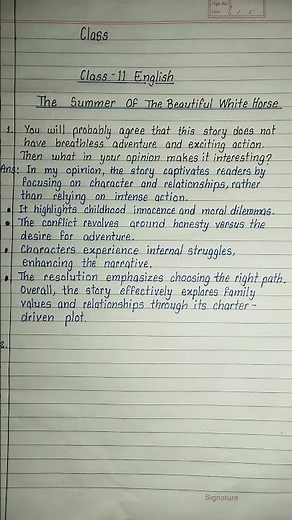 Page No.
Date
Class
Class-11 English
The Summer Of The Beautiful White Horse
1. You will probably agree that this story does not
have breathless adventure and exciting action.
Then what in your opinion makes it interesting?
Ans: In my opinion, the story captivates readers by
focusing on character and relationships, rather
than relying on intense action.
• It highlights childhood innocence and moral dilemmas.
• The conflict revolves around honesty versus the
desire for adventure.
• Characters experience internal struggles,
enhancing the narrative.
• The resolution emphasizes choosing the right path.
Overall, the story effectively explores family
values and relationships through its charter-
driven plot.
2.
Signature